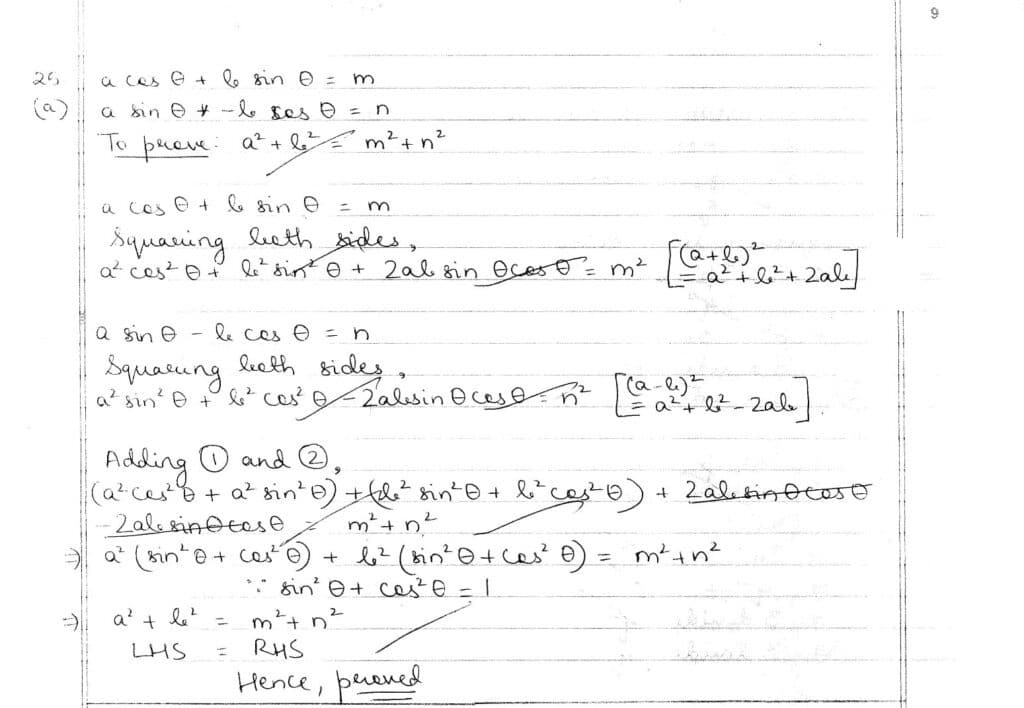 9
26,
a cos θ + b sin θ = m
(a) a sin θ - b cos θ = n
To prove: a² + b² = m² + n²
a cos θ + b sin θ = m
Squaring both sides,
a² cos² θ + b² sin² θ + 2ab sin θ cos θ = m² [(a+b)² = a² + b² + 2ab]
a sin θ - b cos θ = n
Squaring both sides,
a² sin² θ + b² cos² θ - 2ab sin θ cos θ = n² [(a-b)² = a² + b² - 2ab]
Adding ① and ②,
(a² cos² θ + a² sin² θ) + (b² sin² θ + b² cos² θ) + 2ab sin θ cos θ
- 2ab sin θ cos θ = m² + n²
⇒ a² (sin² θ + cos² θ) + b² (sin² θ + cos² θ) = m² + n²
∵ sin² θ + cos² θ = 1
⇒ a² + b² = m² + n²
LHS = RHS
Hence, proved